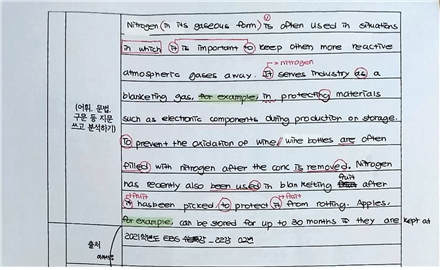 Nitrogen (in its gaseous form) is often used in situations
in which it is important to keep other, more reactive
= nitrogen
atmospheric gases away. It serves industry as a
blanketing gas, for example, in protecting materials
(어휘, 문법,
구문 등 지문
쓰고 분석하기)
such as electronic components during production or storage.
To prevent the oxidation of wine, wine bottles are often
filled with nitrogen after the cork is removed. Nitrogen
has recently also been used in blanketing fruit after
= fruit
= fruit
it has been picked to protect it from rotting. Apples,
for example, can be stored for up to 30 months if they are kept at
출처
2021학년도 EBS 수능특강 - 22강 02번